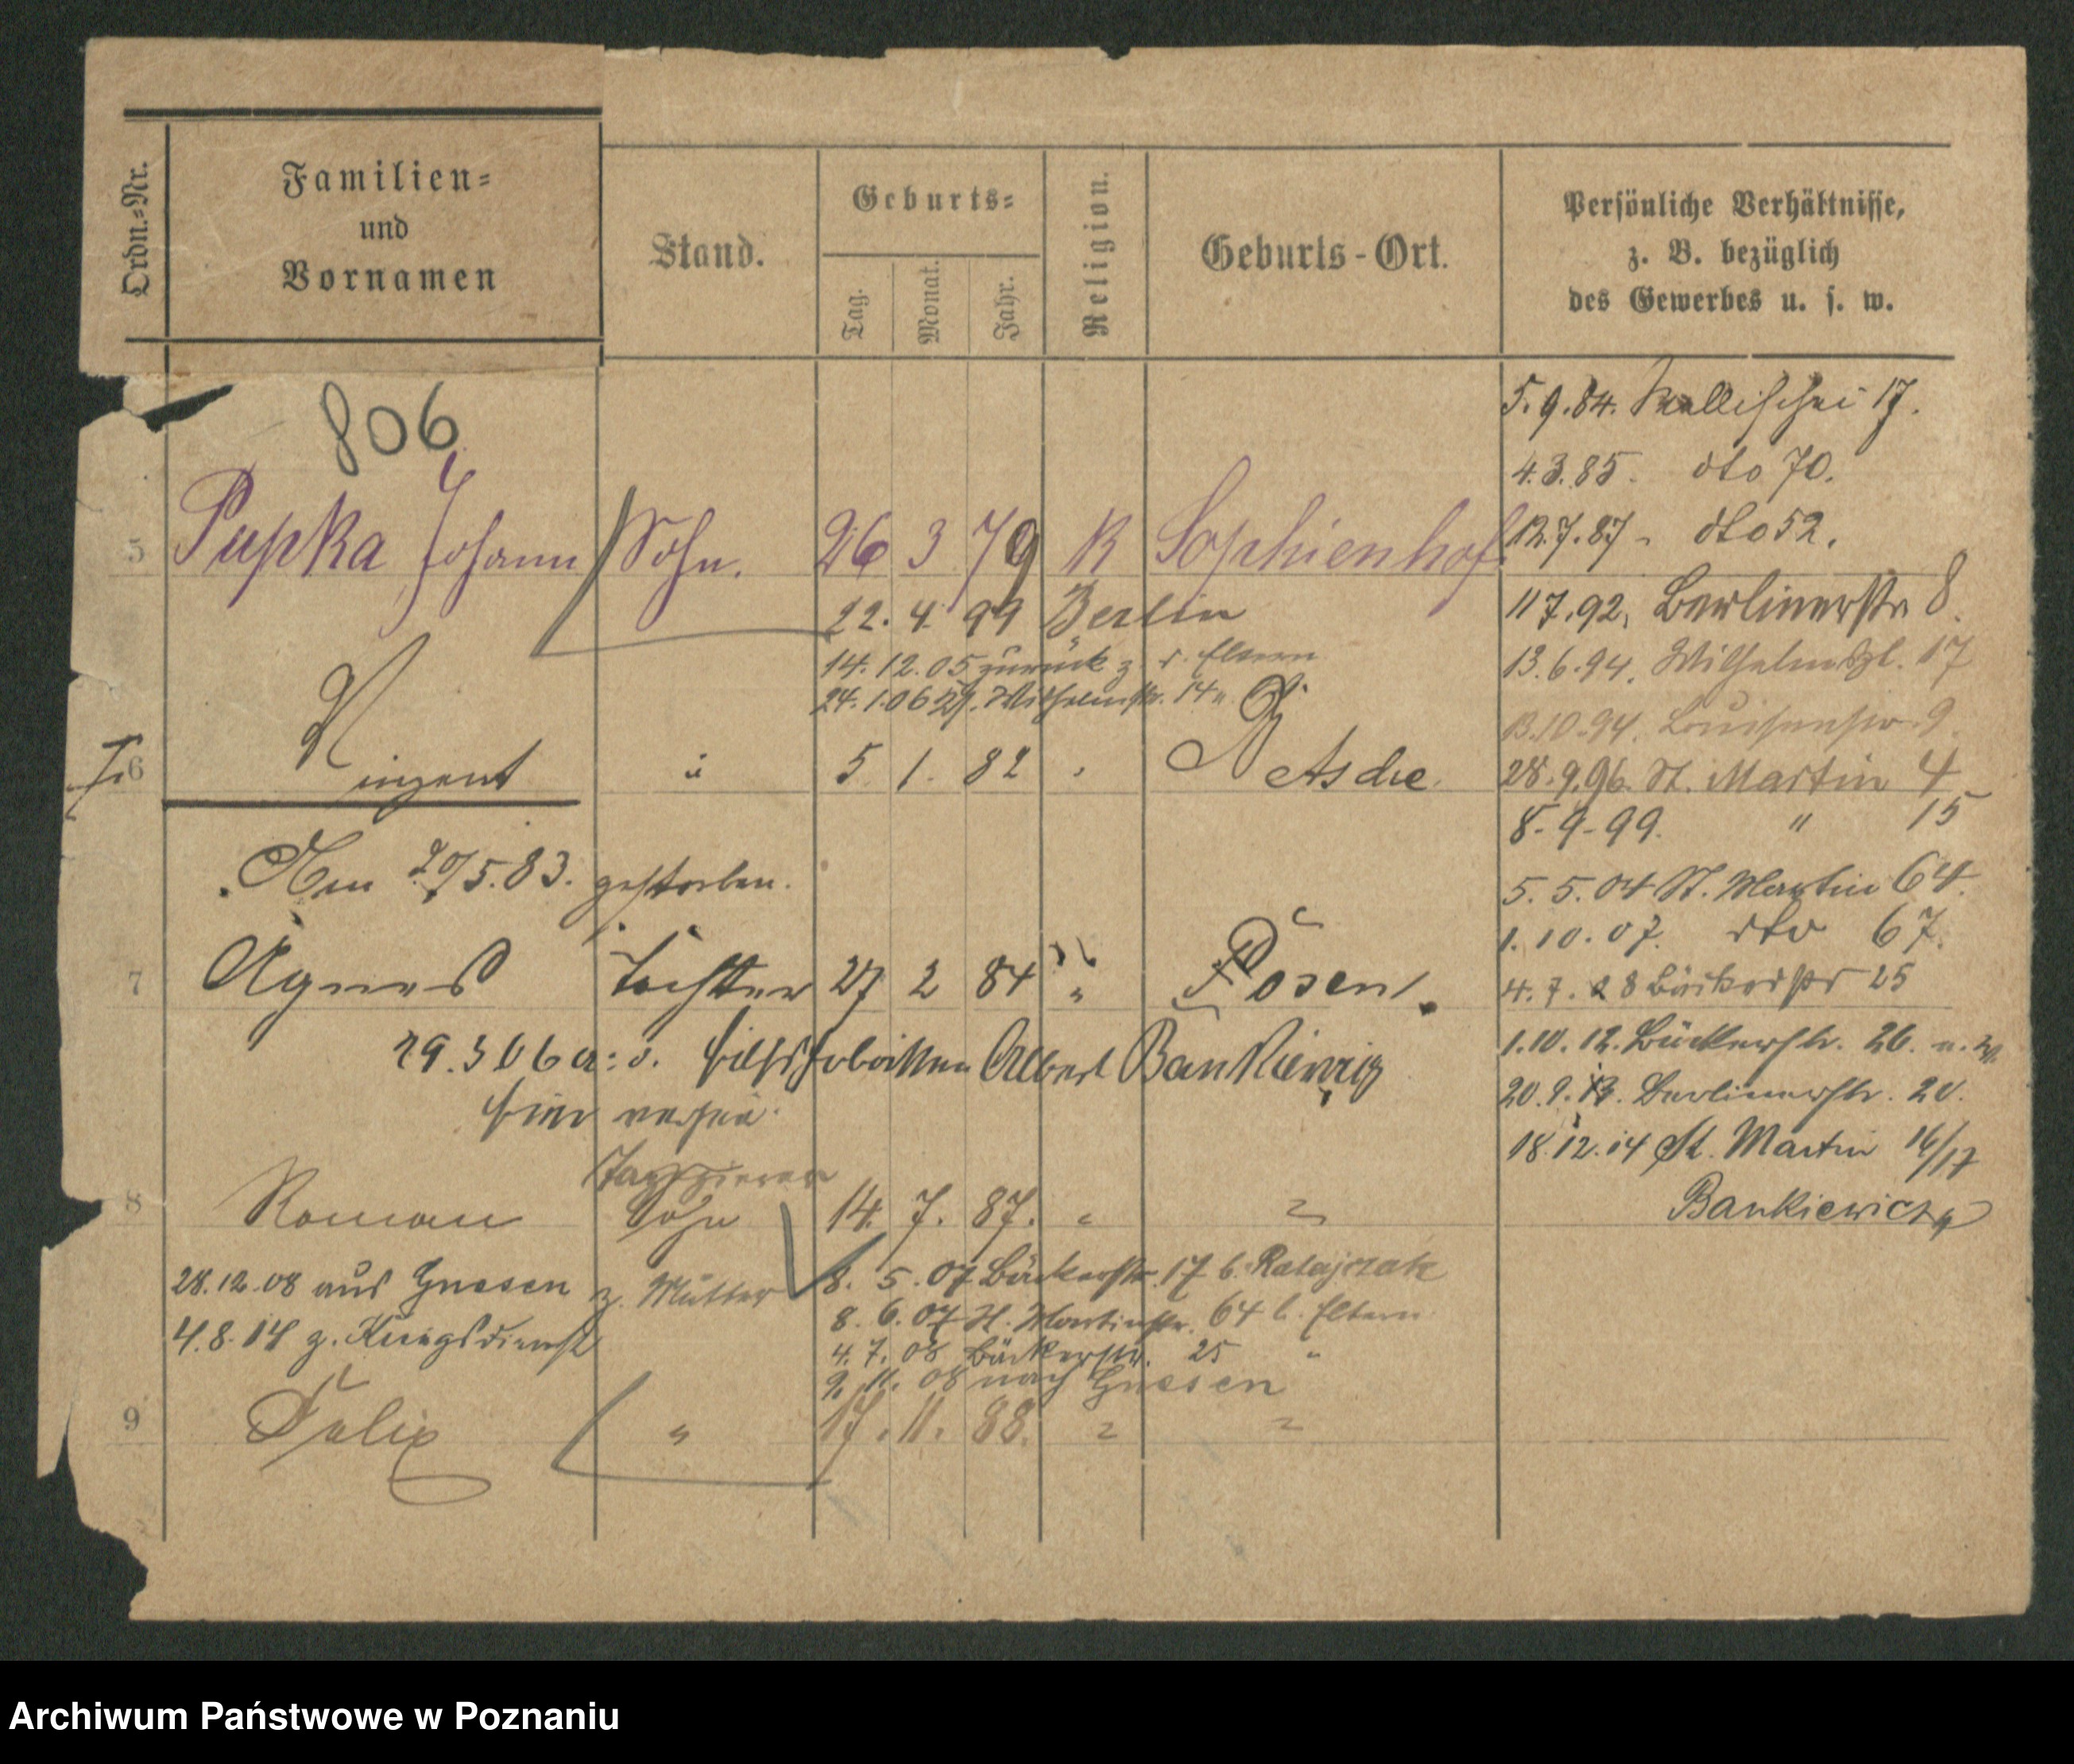 Ordn.=Nr.
Familien=
und
Vornamen
Stand.
Geburts=
Tag.
Monat.
Jahr.
Religion.
Geburts-Ort.
Persönliche Verhältnisse,
z. B. bezüglich
des Gewerbes u. s. w.
806
5.9.84. Wallischei 17.
4.3.85. dto 70.
12.7.87 - dto 52.
5 Pupka Johann Sohn. 26 3 79 K Sophienhof
22. 4. 99 Berlin
14. 12. 05 zurück z. d. Eltern
24. 1. 06 Wilhelmstr. 14
11 7.92. Berlinerstr 8.
13.6.94. Wilhelmspl. 17
13.10.94. Louisenstr. 9.
6 Vinzent " 5. 1. 82 "
28.9.96. St. Martin 4
8-9-99. " 15
Am 20/5.83. gestorben.
5. 5. 04 St. Martin 64.
1. 10. 07. dto 67.
7 Agnes Tochter 27 2 84 " Posen.
4. 7. 08 Bäckerstr 25
29. 3 06 a: d. Albert Bankiewicz
hier
1.10.12. Bäckerstr. 26.
20.9.13. Berlinerstr. 20.
18.12.14 St. Martin 16/17
Bankiewicz
Tapezierer
8 Roman Sohn 14. 7. 87. " "
28.12.08 aus Gnesen z. Mutter
4.8.14 z. Kriegsdienst
8. 5. 07 Bäckerstr. 17 b. Ratajczak
8. 6. 07 St. Martinstr. 64 b. Eltern
4. 7. 08 Bäckerstr. 25 "
9. 11. 08 nach Gnesen
9 Felix " 17. 11. 88. " "
Archiwum Państwowe w Poznaniu